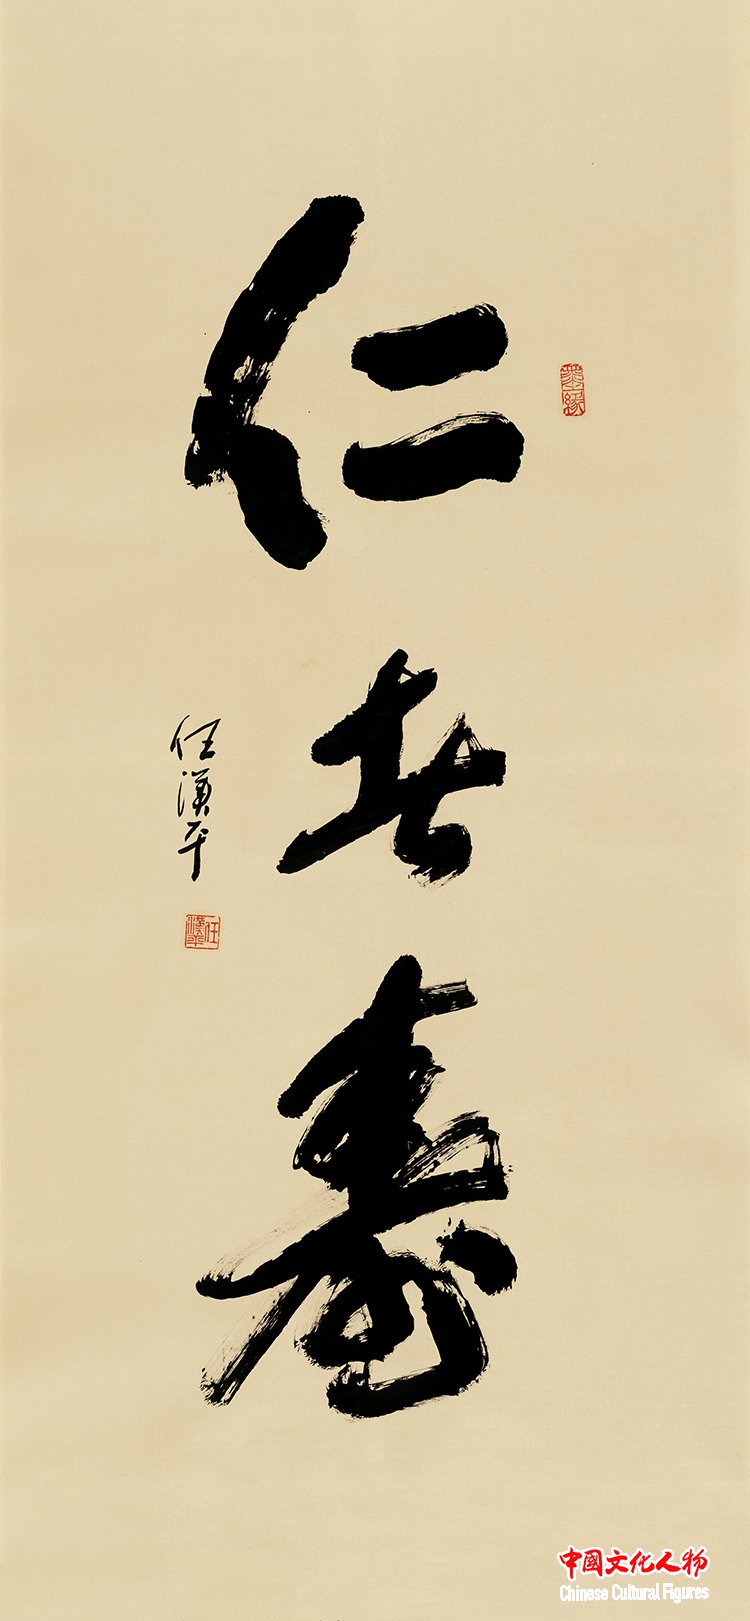 仁者寿
墨缘
任汉平
任汉平
中國文化人物
Chinese Cultural Figures